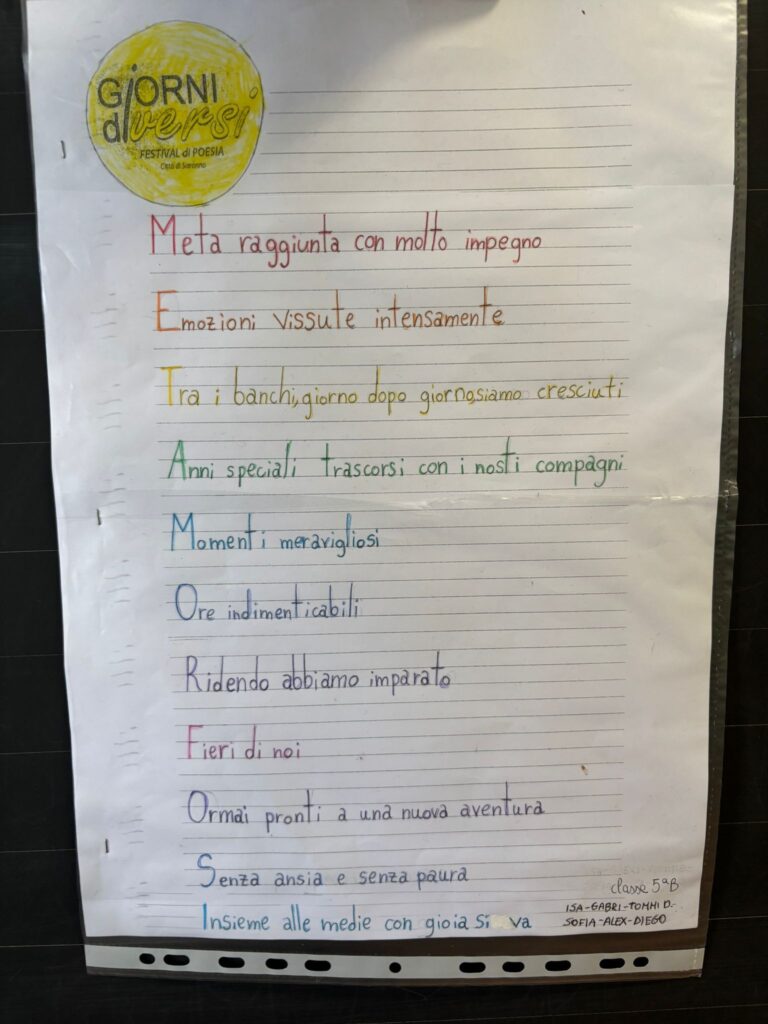 GiORNI
diversi
FESTIVAL di POESIA
Città di Saronno
Meta raggiunta con molto impegno
Emozioni vissute intensamente
Tra i banchi, giorno dopo giorno, siamo cresciuti
Anni speciali trascorsi con i nosti compagni
Momenti meravigliosi
Ore indimenticabili
Ridendo abbiamo imparato
Fieri di noi
Ormai pronti a una nuova aventura
Senza ansia e senza paura
Insieme alle medie con gioia si va
classe 5ªB
ISA-GABRI-TOMMI D.-
SOFIA-ALEX-DIEGO